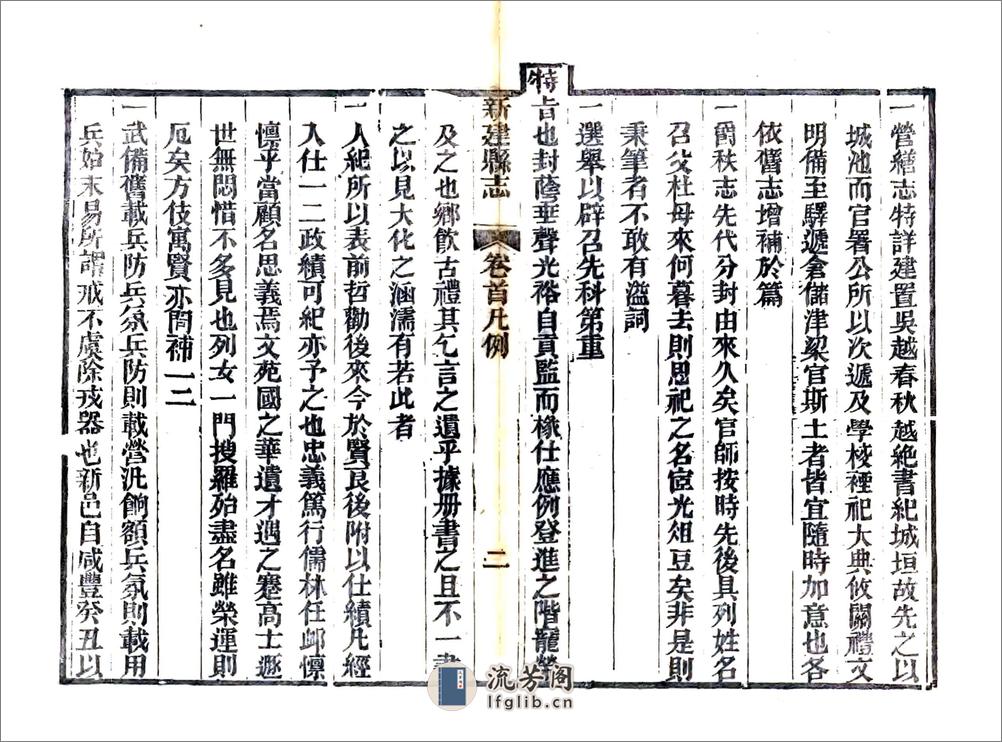 一營繕志特詳建置吳越春秋越絶書紀城垣故先之以
城池而官署公所以次遞及學校禋祀大典攸關禮文
明備至驛遞倉儲津梁官斯土者皆宜隨時加意也各
依舊志增補於篇
一爵秩志先代分封由來久矣官師按時先後具列姓名
召父杜母來何暮去則思祀之名宦光俎豆矣非是則
秉筆者不敢有溢詞
一選舉以辟召先科第重
特旨也封蔭垂聲光裕自貢監而椽仕應例登進之階龍榮
新建縣志
卷首凡例
二
及之也鄉飲古禮其乞言之遺乎據册書之且不一書
之以見大化之涵濡有若此者
一人紀所以表前哲勸後來今於賢良後附以仕績凡經
入仕一二政績可紀亦予之也忠義篤行儒林任卹懍
懍乎當顧名思義焉文苑國之華遺才遇之蹇高士遯
世無悶惜不多見也列女一門搜羅殆盡名雖榮運則
厄矣方伎寓賢亦間補一二
一武備舊載兵防兵氛兵防則載營汛餉額兵氛則載用
兵始末易所謂戒不虞除戎器也新邑自咸豐癸丑以
流芳阁
lfglib.cn